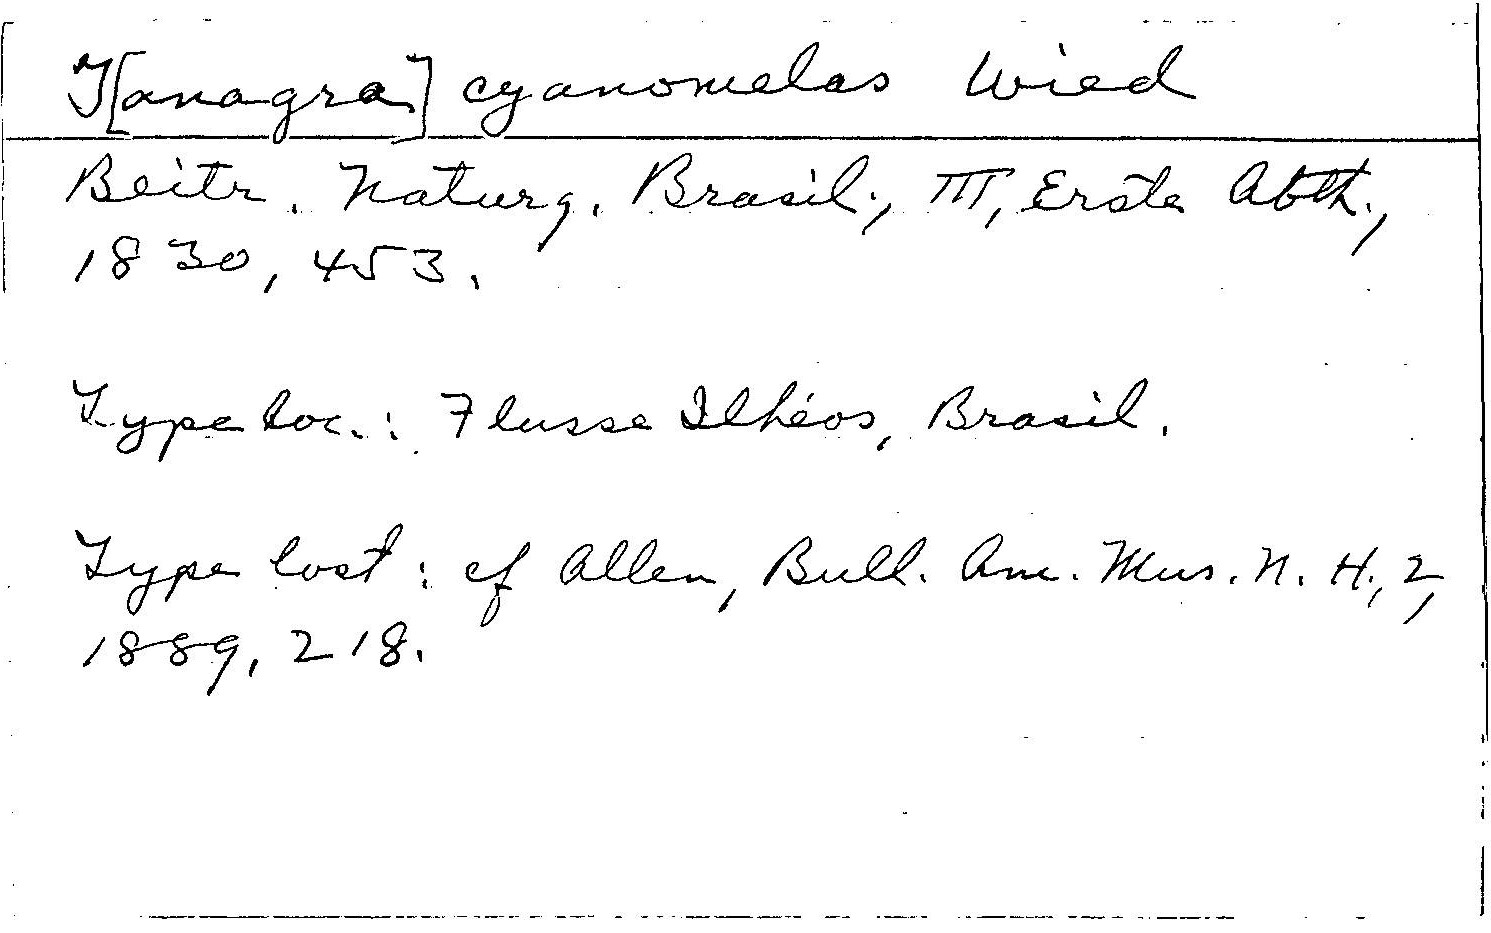 T[anagra] cyanomelas Wied
Beitr. Naturg. Brasil., III, Erste Abth.,
1830, 453.
Type loc.: Flusse Ilhéos, Brasil.
Type lost: cf Allen, Bull. Am. Mus. N. H., 2,
1889, 218.